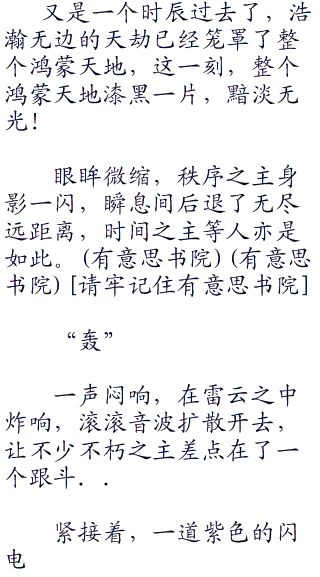 又是一个时辰过去了，浩
瀚无边的天劫已经笼罩了整
个鸿蒙天地，这一刻，整个
鸿蒙天地漆黑一片，黯淡无
光！
眼眸微缩，秩序之主身
影一闪，瞬息间后退了无尽
远距离，时间之主等人亦是
如此。(有意思书院) (有意思
书院) [请牢记住有意思书院]
“轰”
一声闷响，在雷云之中
炸响，滚滚音波扩散开去，
让不少不朽之主差点在了一
个跟斗．．
紧接着，一道紫色的闪
电